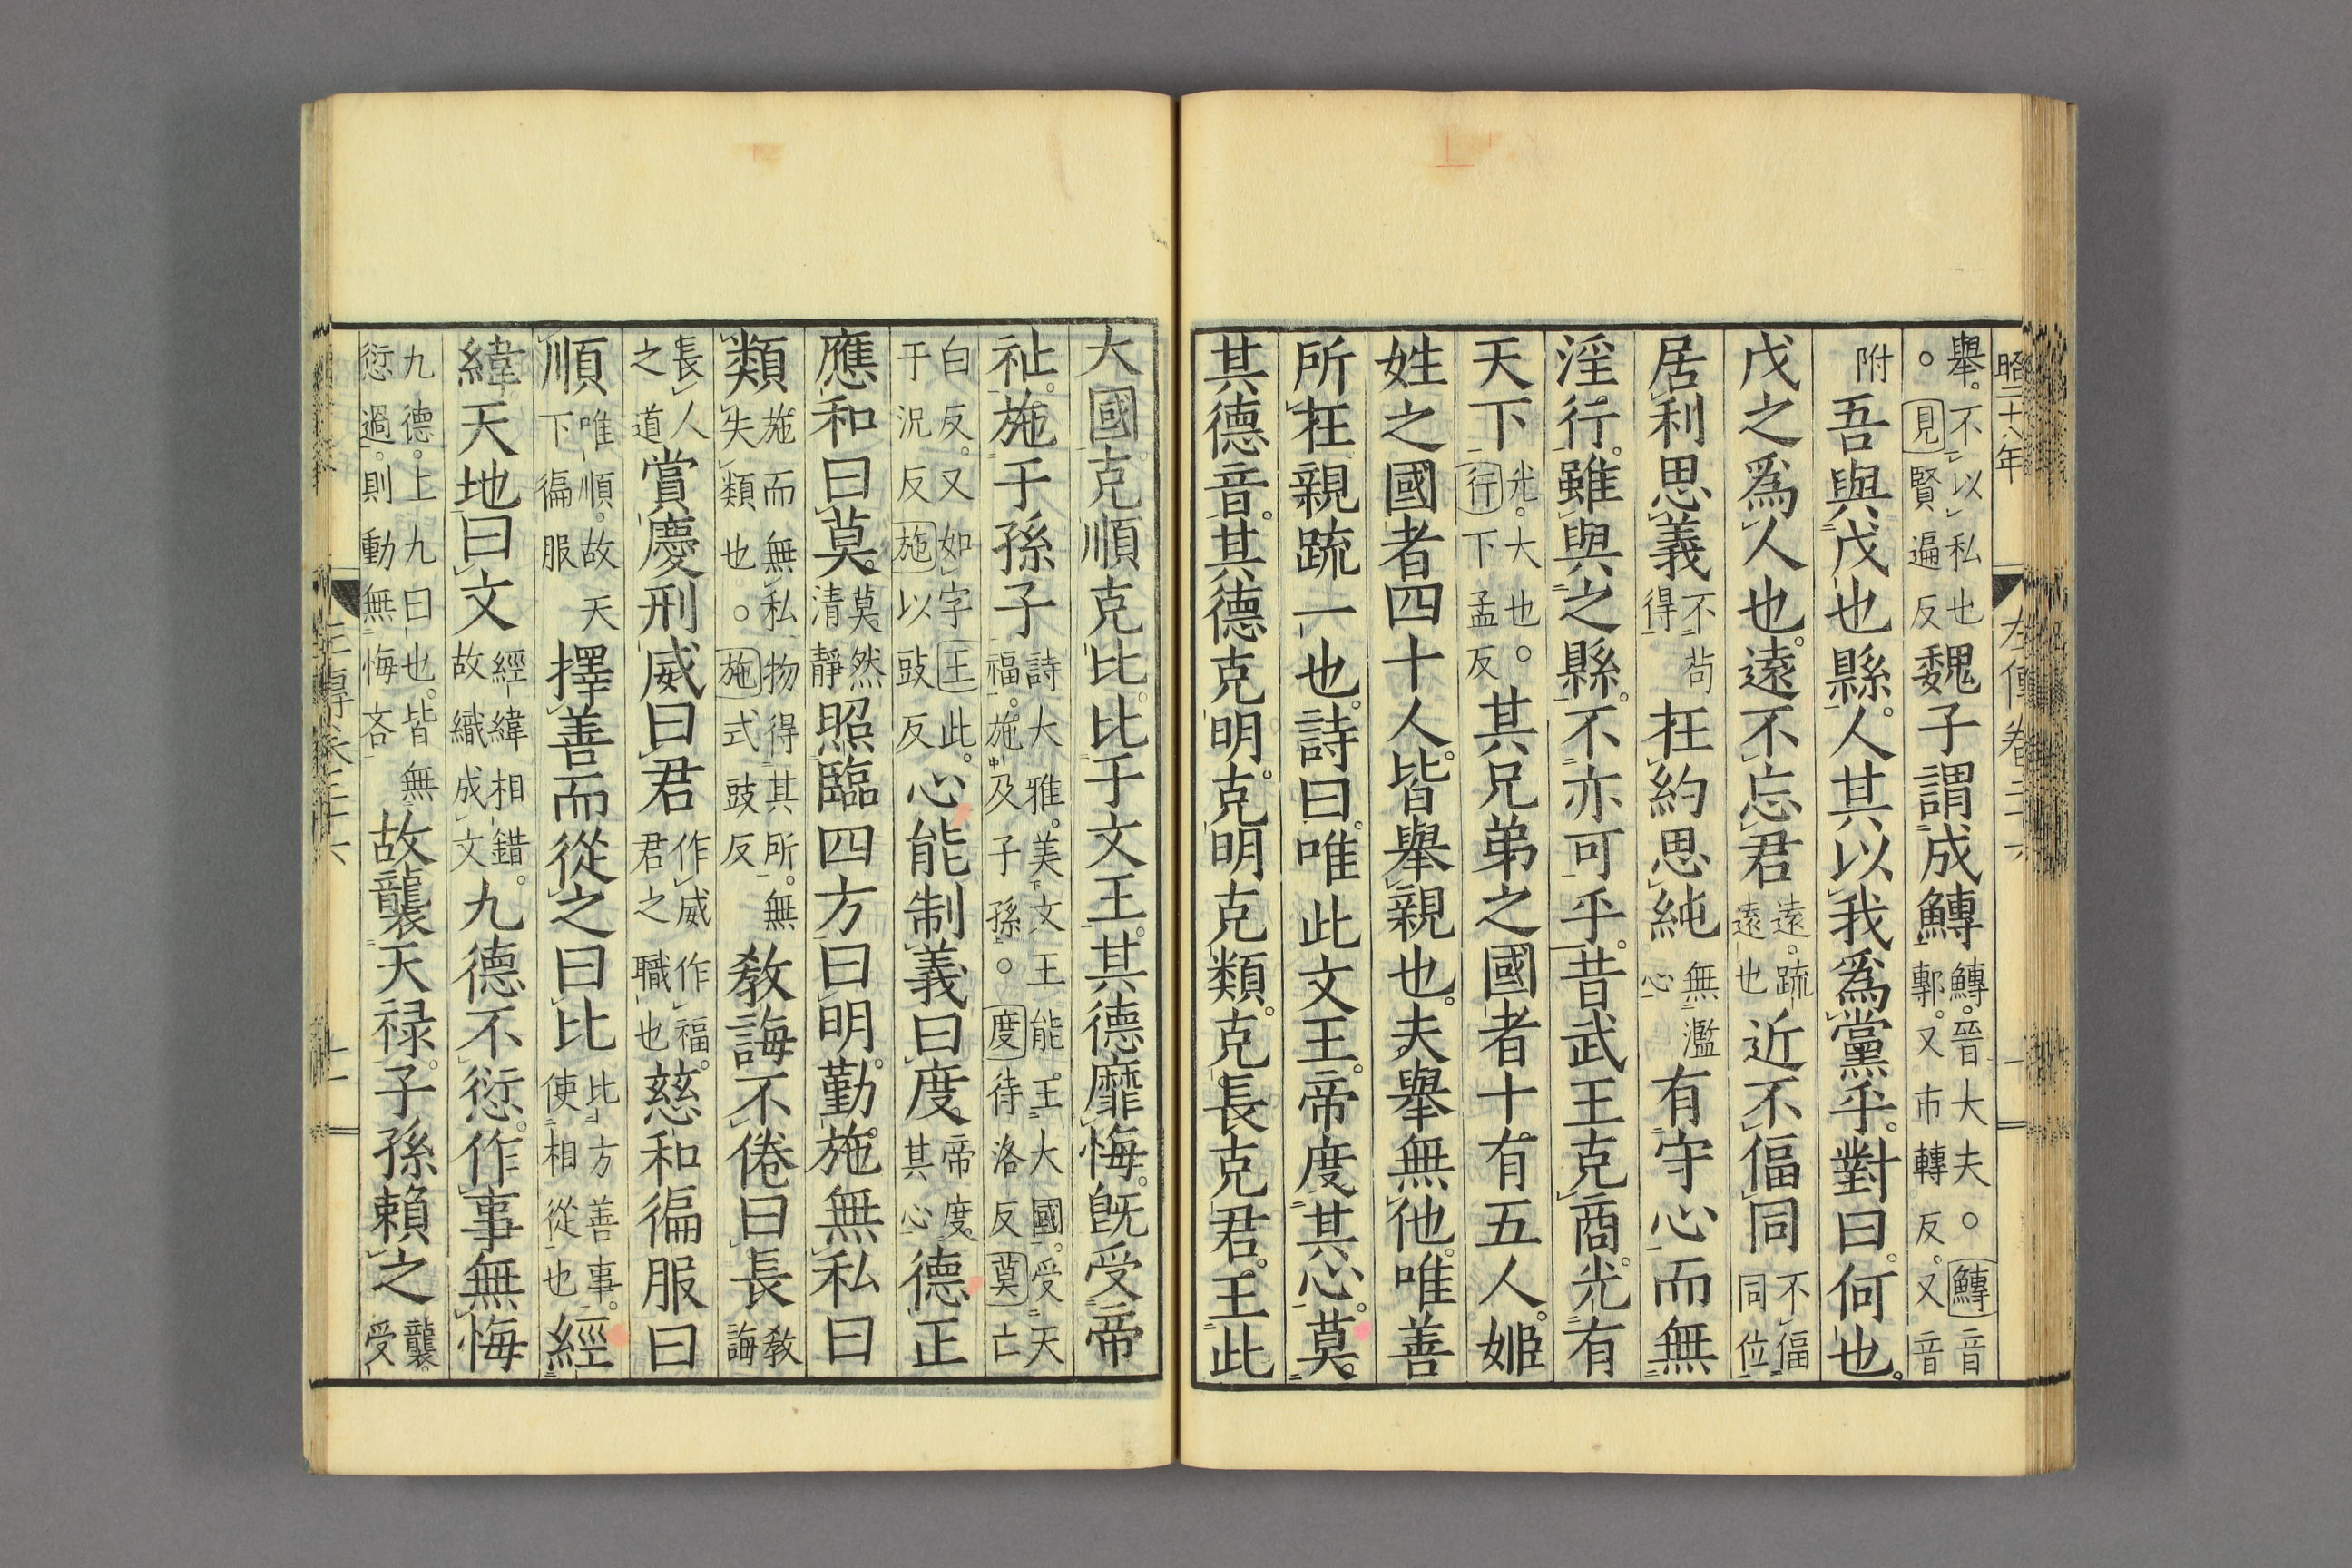 昭二十八年 左傳卷二十六
舉不以私也○見賢遍反魏子謂成鱄鱄晉大夫○鱄音鄟又市轉反又音
附吾與戊也縣人其以我爲黨乎對曰何也
戊之爲人也遠不忘君遠疏遠也近不偪同不偪同位
居利思義不苟得在約思純無濫心有守心而無
淫行雖與之縣不亦可乎昔武王克商光有
天下光大也○行下孟反其兄弟之國者十有五人姬
姓之國者四十人皆舉親也夫舉無他唯善
所在親疏一也詩曰唯此文王帝度其心莫
其德音其德克明克明克類克長克君王此
大國克順克比比于文王其德靡悔既受帝
祉施于孫子詩大雅美文王能王大國受天福施及子孫○度待洛反莫亡
白反又如字王此于況反施以豉反心能制義曰度帝度其心德正
應和曰莫莫然清靜照臨四方曰明勤施無私曰
類施而無私物得其所無失類也○施式豉反教誨不倦曰長教誨
長人之道賞慶刑威曰君作威作福君之職也慈和徧服曰
順唯順故天下徧服擇善而從之曰比比方善事使相從也經
緯天地曰文經緯相錯故織成文九德不愆作事無悔
九德上九曰也皆無愆過則動無悔吝故襲天祿子孫賴之襲受